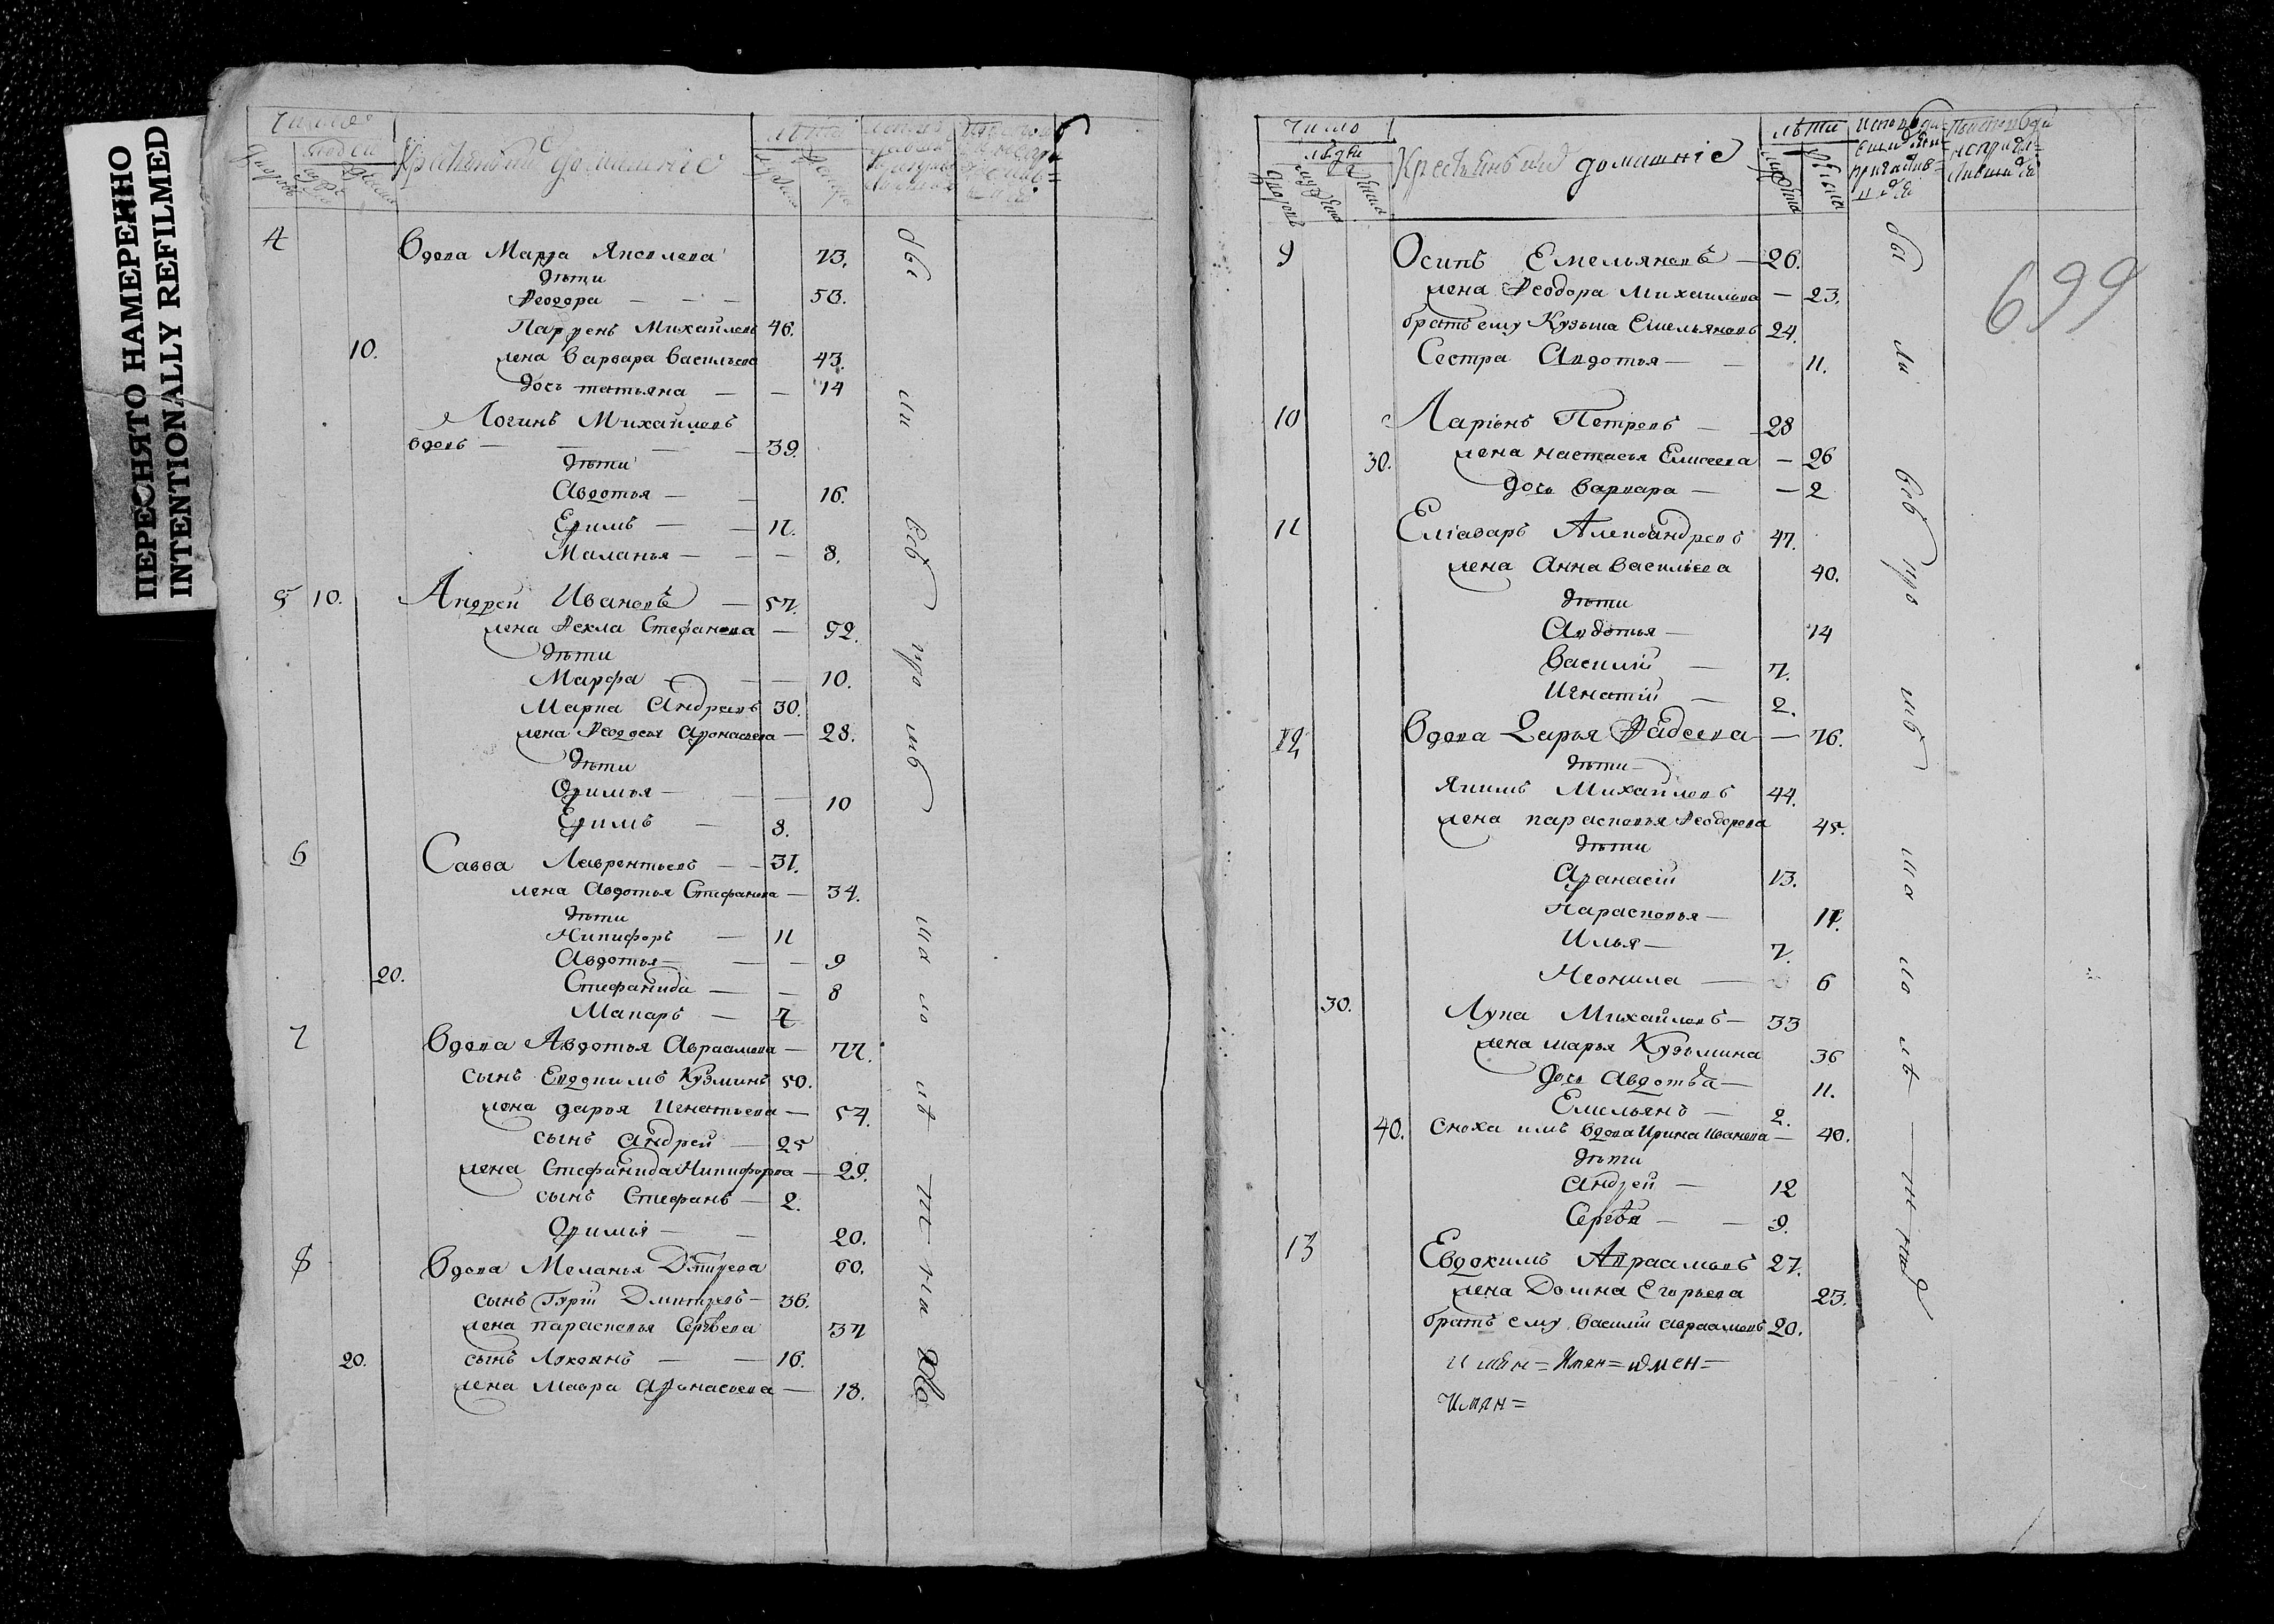 ПЕРЕСНЯТО НАМЕРЕННО
INTENTIONALLY REFILMED
Число
людей
дворовъ
Крестьянъ и ихъ домашніе
лѣта
4 Вдова Марѳа Яковлева 73.
дѣти
Ѳеодора — — — 53.
Парѳенъ Михайловъ 46.
10. жена Варвара Васильева 43.
дочь татьяна — — 14
Логинъ Михайловъ
вдовъ — — — — 39.
дѣти
Авдотья — — 16.
Ефимъ — — 11.
Маланья — — — 8.
5 10. Андрей Ивановъ — 57.
жена Ѳекла Стефанова — 52.
дѣти
Марфа — — — 10.
Марка Андреевъ 30.
жена Ѳеодосья Афонасьева — 28.
дѣти
Офимья — — — 10
Ефимъ — 8.
6 Савва Лаврентьевъ — — 31.
жена Авдотья Стефанова — 34.
дѣти
Никифоръ — 11
Авдотья — — — 9
20. Стефанида — — 8
Макаръ — 7
7 Вдова Авдотья Авраамова — 77.
сынъ Евдокимъ Кузминъ 50.
жена дарья Игнатьева — 54.
сынъ Андрей — 25
жена Стефанида Никифорова — 29.
сынъ Стефанъ — 2.
Офимія — — 20.
8 Вдова Меланья Дмитреева 60.
сынъ Гурій Дмитревъ — 36.
жена парасковья Сергѣева 37
20. сынъ Лукоянъ — — 16.
жена Мавра Афонасьева — 18.
бы ли всѣ про шѣ ша го лѣ та
Число
людей
дворовъ
мужска
женска
Крестьянъ и ихъ домашніе
лѣта
мужска
женска
699
9 Осипъ Емельяновъ — 26.
жена Ѳеодора Михаилова — 23.
братъ ему Кузьма Емельяновъ 24.
Сестра Авдотья — — 11.
10 Ларіонъ Петровъ — 28
30. жена настасья Елисеева — 26
дочь Варвара — — 2
11 Еліазаръ Александровъ 47.
жена Анна Васильева 40.
дѣти
Авдотья — 14
Василій — 7.
Игнатій — 2.
12 Вдова Дарья Ѳадеева — 76.
дѣти —
Якимъ Михайловъ 44.
жена парасковья Ѳеодорова 45.
дѣти
Афанасій 13.
Парасковья — 11.
Илья — 7.
Неонила — 6
30. Лука Михайловъ — 33
жена марья Кузьмина 36
дочь Авдотья — 11.
Емельянъ — 2.
40. Сноха имъ вдова Ирина Иванова — 40.
дѣти
Андрей — 12
Сергѣй — — 9.
13 Евдокимъ Авраамовъ 27.
жена Домна Егорьева 23.
братъ ему Василій авраамовъ 20.
Имян = Имян = имен =
Имян =
бы ли всѣ про шѣ ша го лѣ та